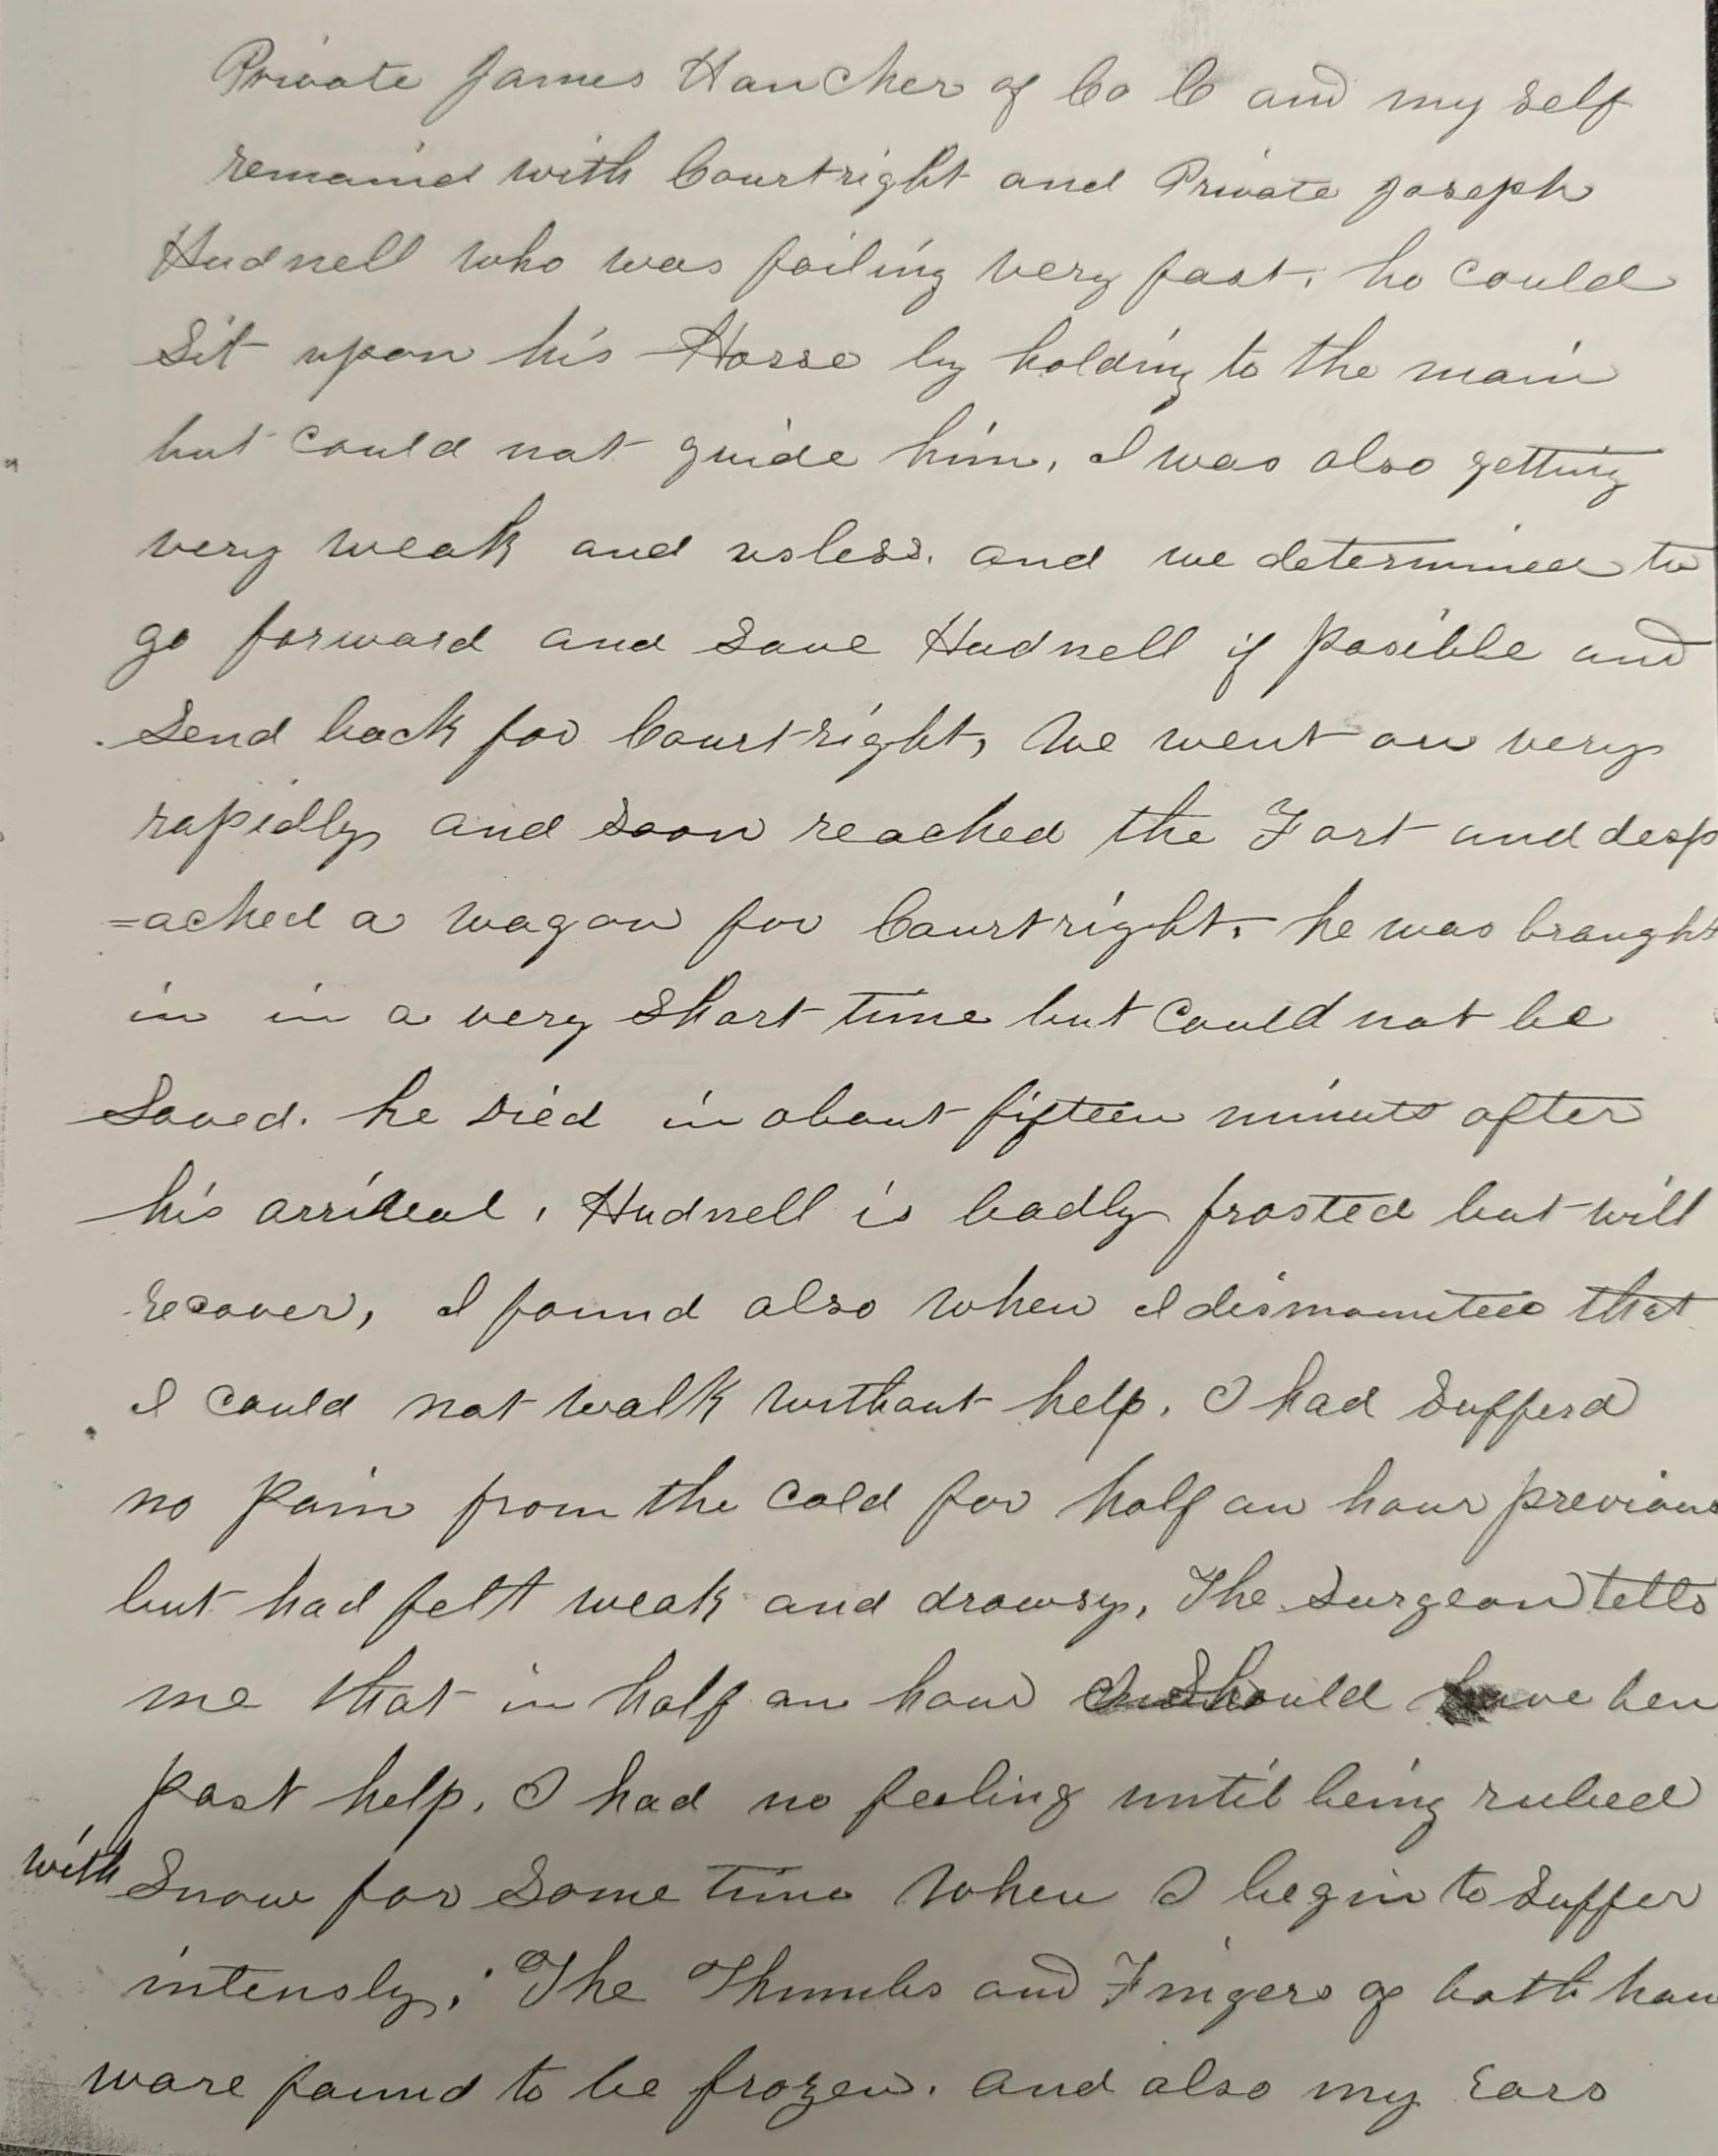 Private James Hancher of Co C and my self
remained with Courtright and Private Joseph
Hudnell who was failing very fast, he could
Sit upon his Horse by holding to the main
but could not guide him, I was also getting
very weak and usless. and we determined to
go forward and Save Hudnell if posible and
Send back for Courtright, We went on very
rapidly and soon reached the Fort and desp
=ached a wagon for Courtright. he was brought
in in a very Short time but could not be
Saved. he Died in about fifteen minuts after
his arrival, Hudnell is badly frosted but will
recover, I found also when I dismounted that
I could not walk without help, I had Sufferd
no pain from the cold for half an hour previous
but had felt weak and drowsy, The Surgeon tells
me that in half an hour should have ben
past help, I had no feeling until being rubed
with Snow for Some time when I begin to Suffer
intensly, The Thumbs and Fingers of both han
ware found to be frozen. and also my Ears